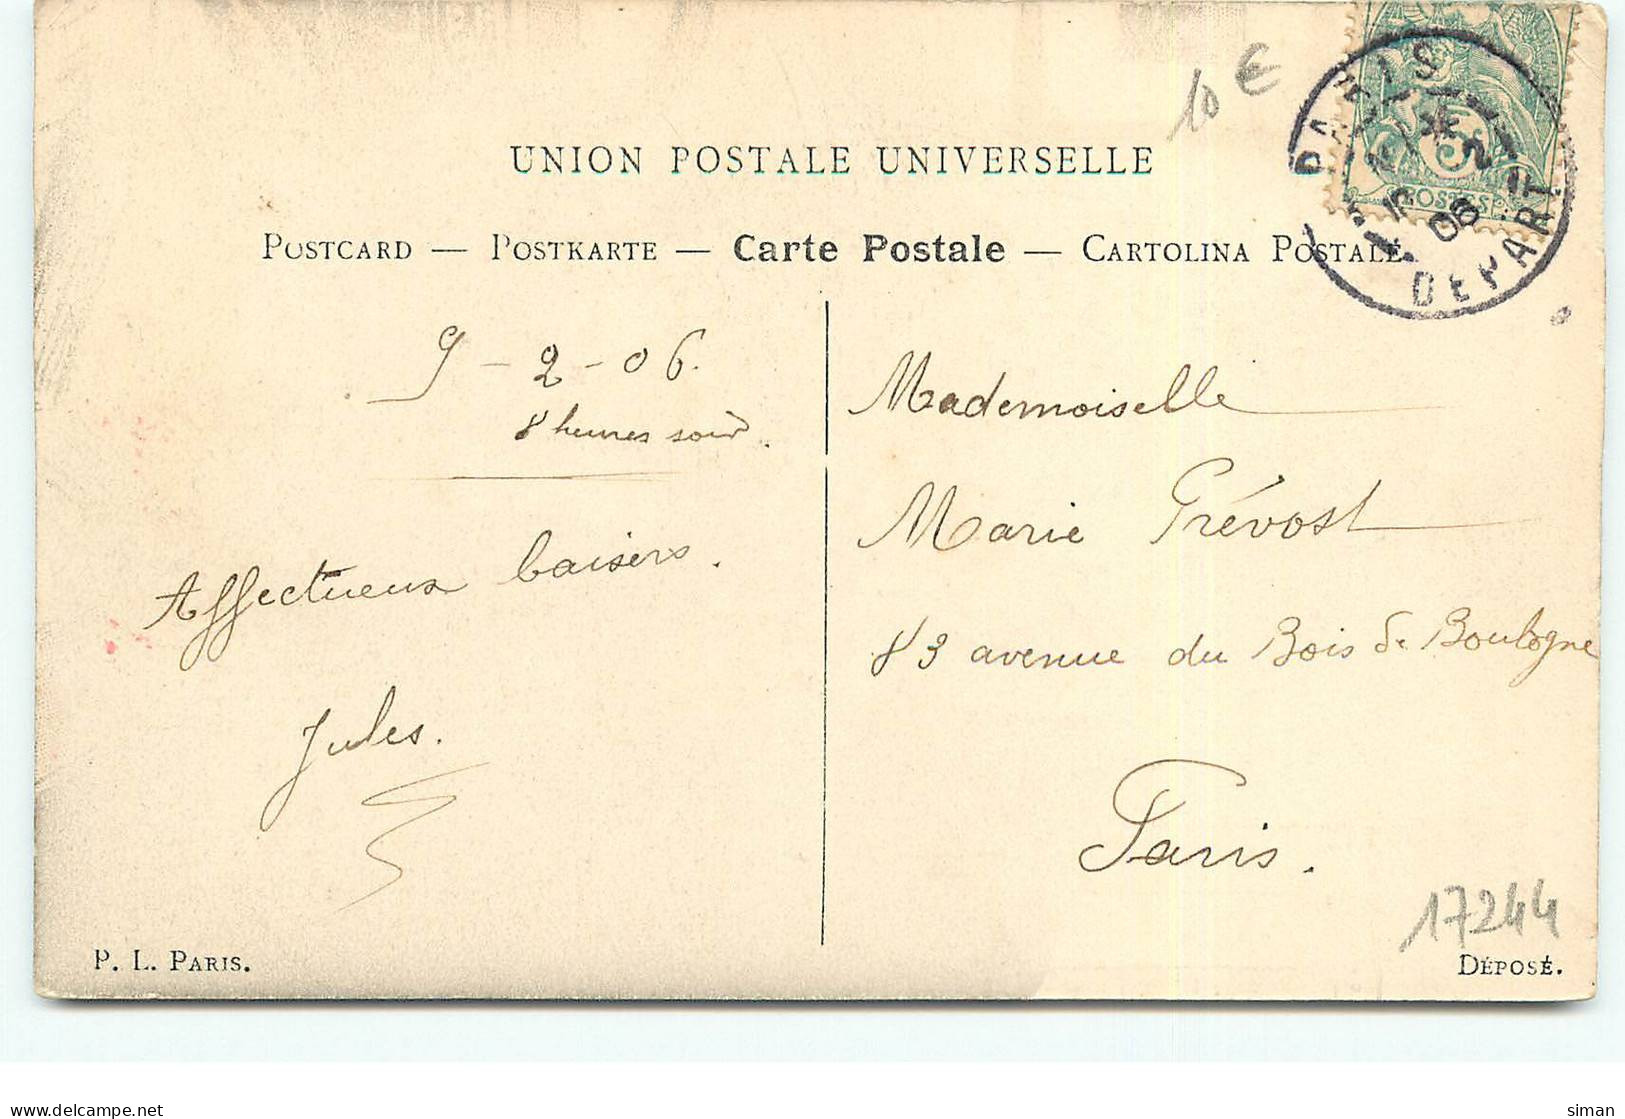 10 €
UNION POSTALE UNIVERSELLE
POSTCARD — POSTKARTE — Carte Postale — CARTOLINA POSTALE
PARIS
2
06
DEPART
5
POSTES
9-2-06.
8 heures soir.
Affectueux baisers.
Jules.
Mademoiselle
Marie Prévost
83 avenue du Bois de Boulogne
Paris.
17244
P. L. PARIS.
DÉPOSÉ.
delcampe.net
siman